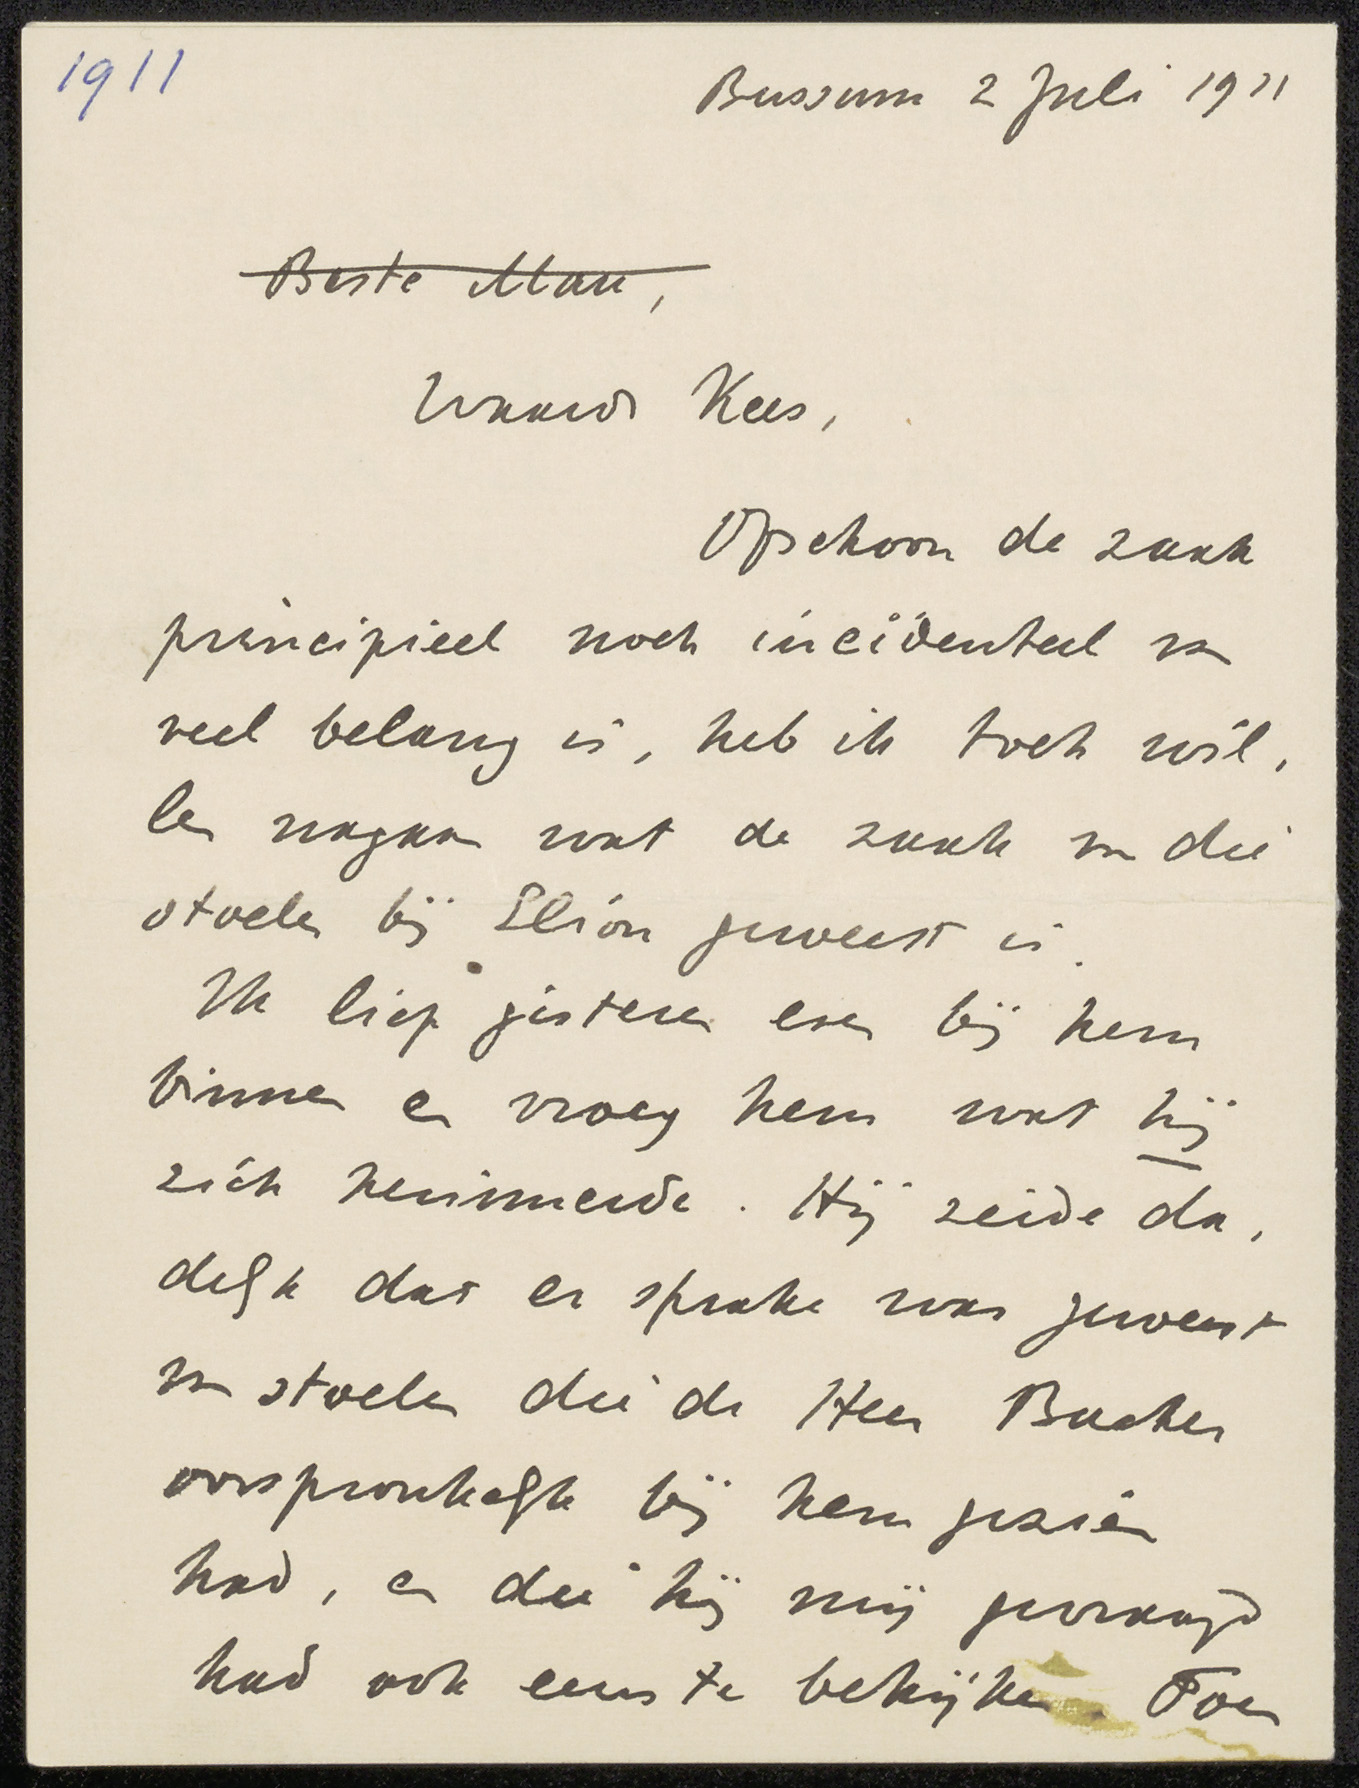 1911
Bussum 2 Juli 1911
Beste Man,
Waarde Kees,
Ofschoon de zaak
principieel noch incidenteel van
veel belang is, heb ik toch wil-
len nagaan wat de zaak van die
stoelen bij Elion geweest is.
Ik liep gisteren even bij hem
binnen en vroeg hem wat hij
zich herinnerde. Hij zeide da-
delijk dat er sprake was geweest
van stoelen die de Heer
oorspronkelijk bij hem gezien
had, en die hij mij gevraagd
had ook eens te bekijken. Toen